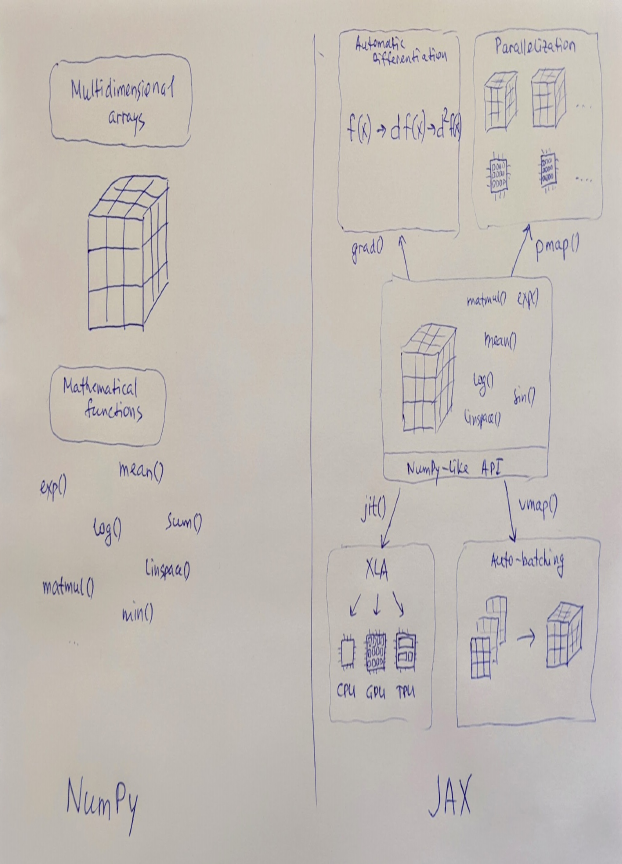 Multidimensional
arrays
Mathematical
functions
exp()
mean()
log()
sum()
matmul()
linspace()
min()
...
NumPy
Automatic
Differentiation
f(x) → df(x) → d²f(x)
Parallelization
....
....
grad()
pmap()
matmul() exp()
mean()
log()
sin()
linspace()
NumPy-like API
jit()
vmap()
XLA
CPU GPU TPU
Auto-batching
JAX